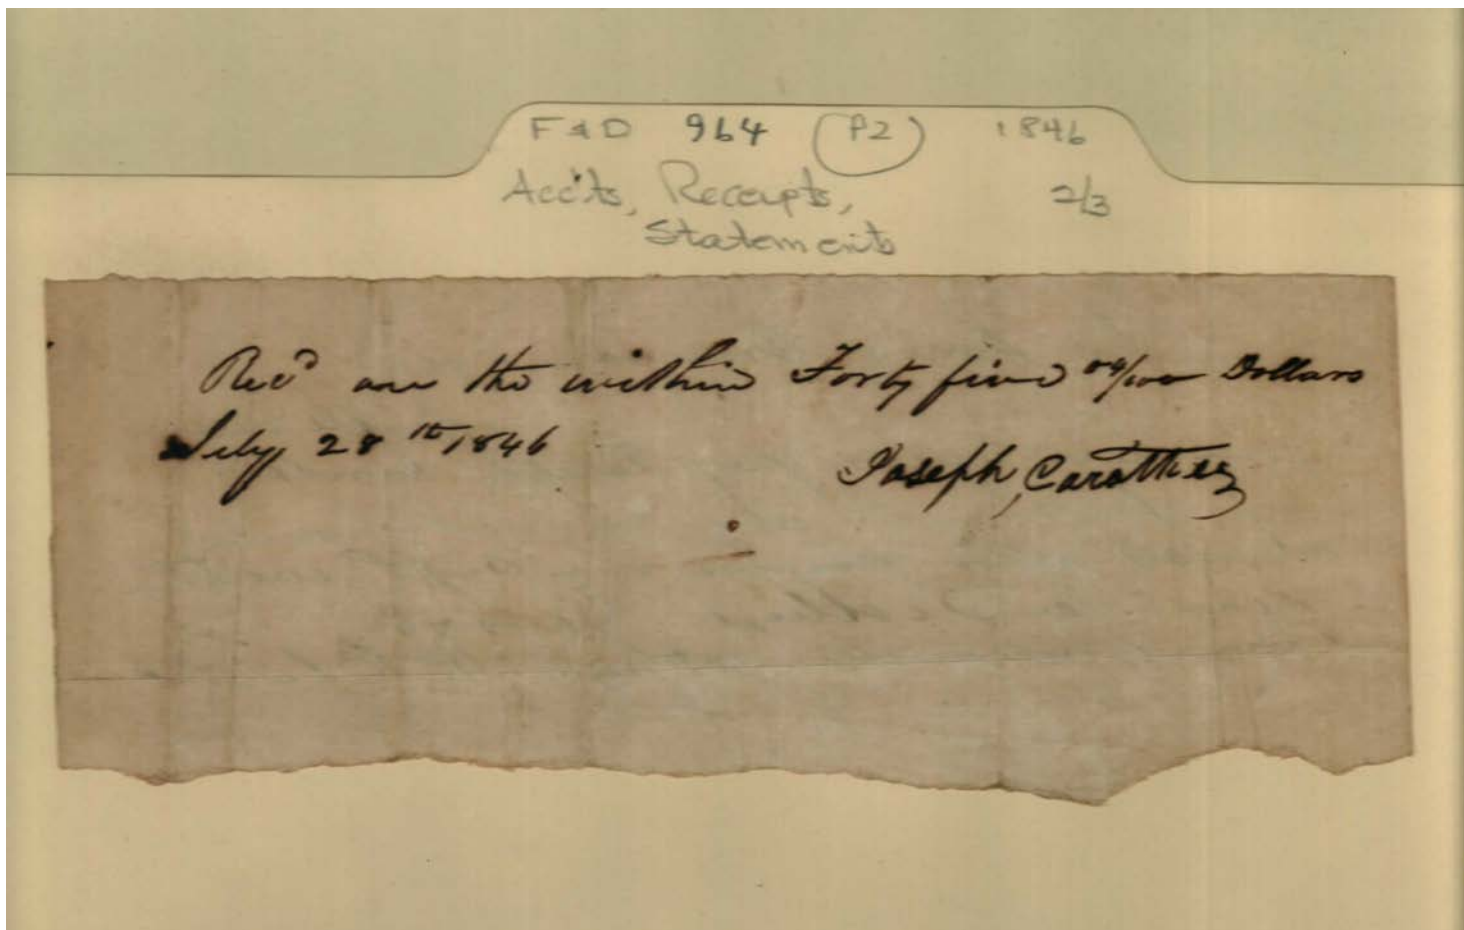 F & D 964 (P2) 1846
Acc'ts, Receipts, 2/3
Statements
Recd on the within Forty five 04/100 Dollars
July 28th 1846
Joseph Carothers